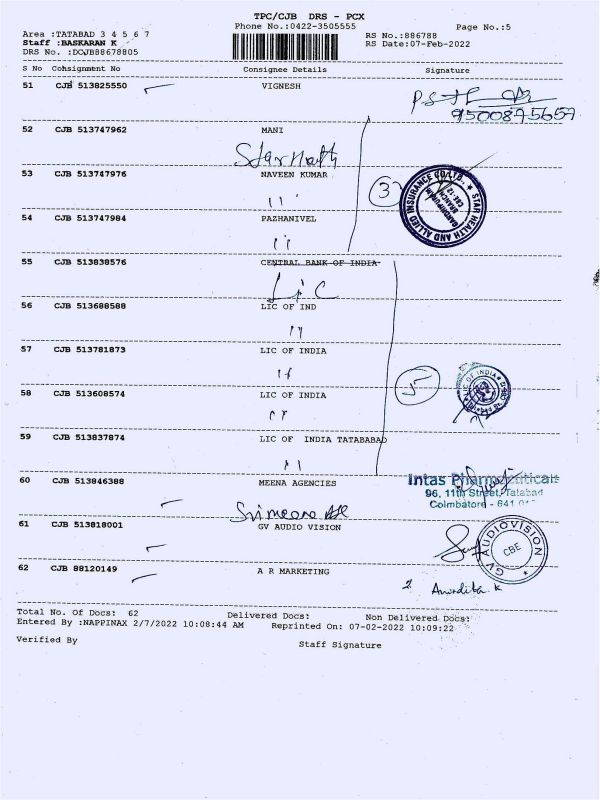 TPC/CJB DRS - PCX
Phone No.:0422-3505555
Page No.:5
Area :TATABAD 3 4 5 6 7
RS No.:886788
Staff :BASKARAN K
RS Date:07-Feb-2022
DRS No. :DCJB88678805
S No Consignment No Consignee Details Signature
51 CJB 513825550 VIGNESH
9500895659
52 CJB 513747962 MANI
Star Health
53 CJB 513747976 NAVEEN KUMAR
3
STAR HEALTH AND ALLIED INSURANCE CO LTD.
54 CJB 513747984 PAZHANIVEL
55 CJB 513838576 CENTRAL BANK OF INDIA
LIC
56 CJB 513688588 LIC OF IND
57 CJB 513781873 LIC OF INDIA
5
LIC OF INDIA
58 CJB 513608574 LIC OF INDIA
59 CJB 513837874 LIC OF INDIA TATABABAD
60 CJB 513846388 MEENA AGENCIES
Intas Pharmaceuticals
96, 11th Street, Tatabad
Coimbatore - 641
Srimeena
61 CJB 513818001 GV AUDIO VISION
GV AUDIOVISION
CBE
62 CJB 88120149 A R MARKETING
Total No. Of Docs: 62 Delivered Docs: Non Delivered Docs:
Entered By :NAPPINAX 2/7/2022 10:08:44 AM Reprinted On: 07-02-2022 10:09:22
Verified By Staff Signature